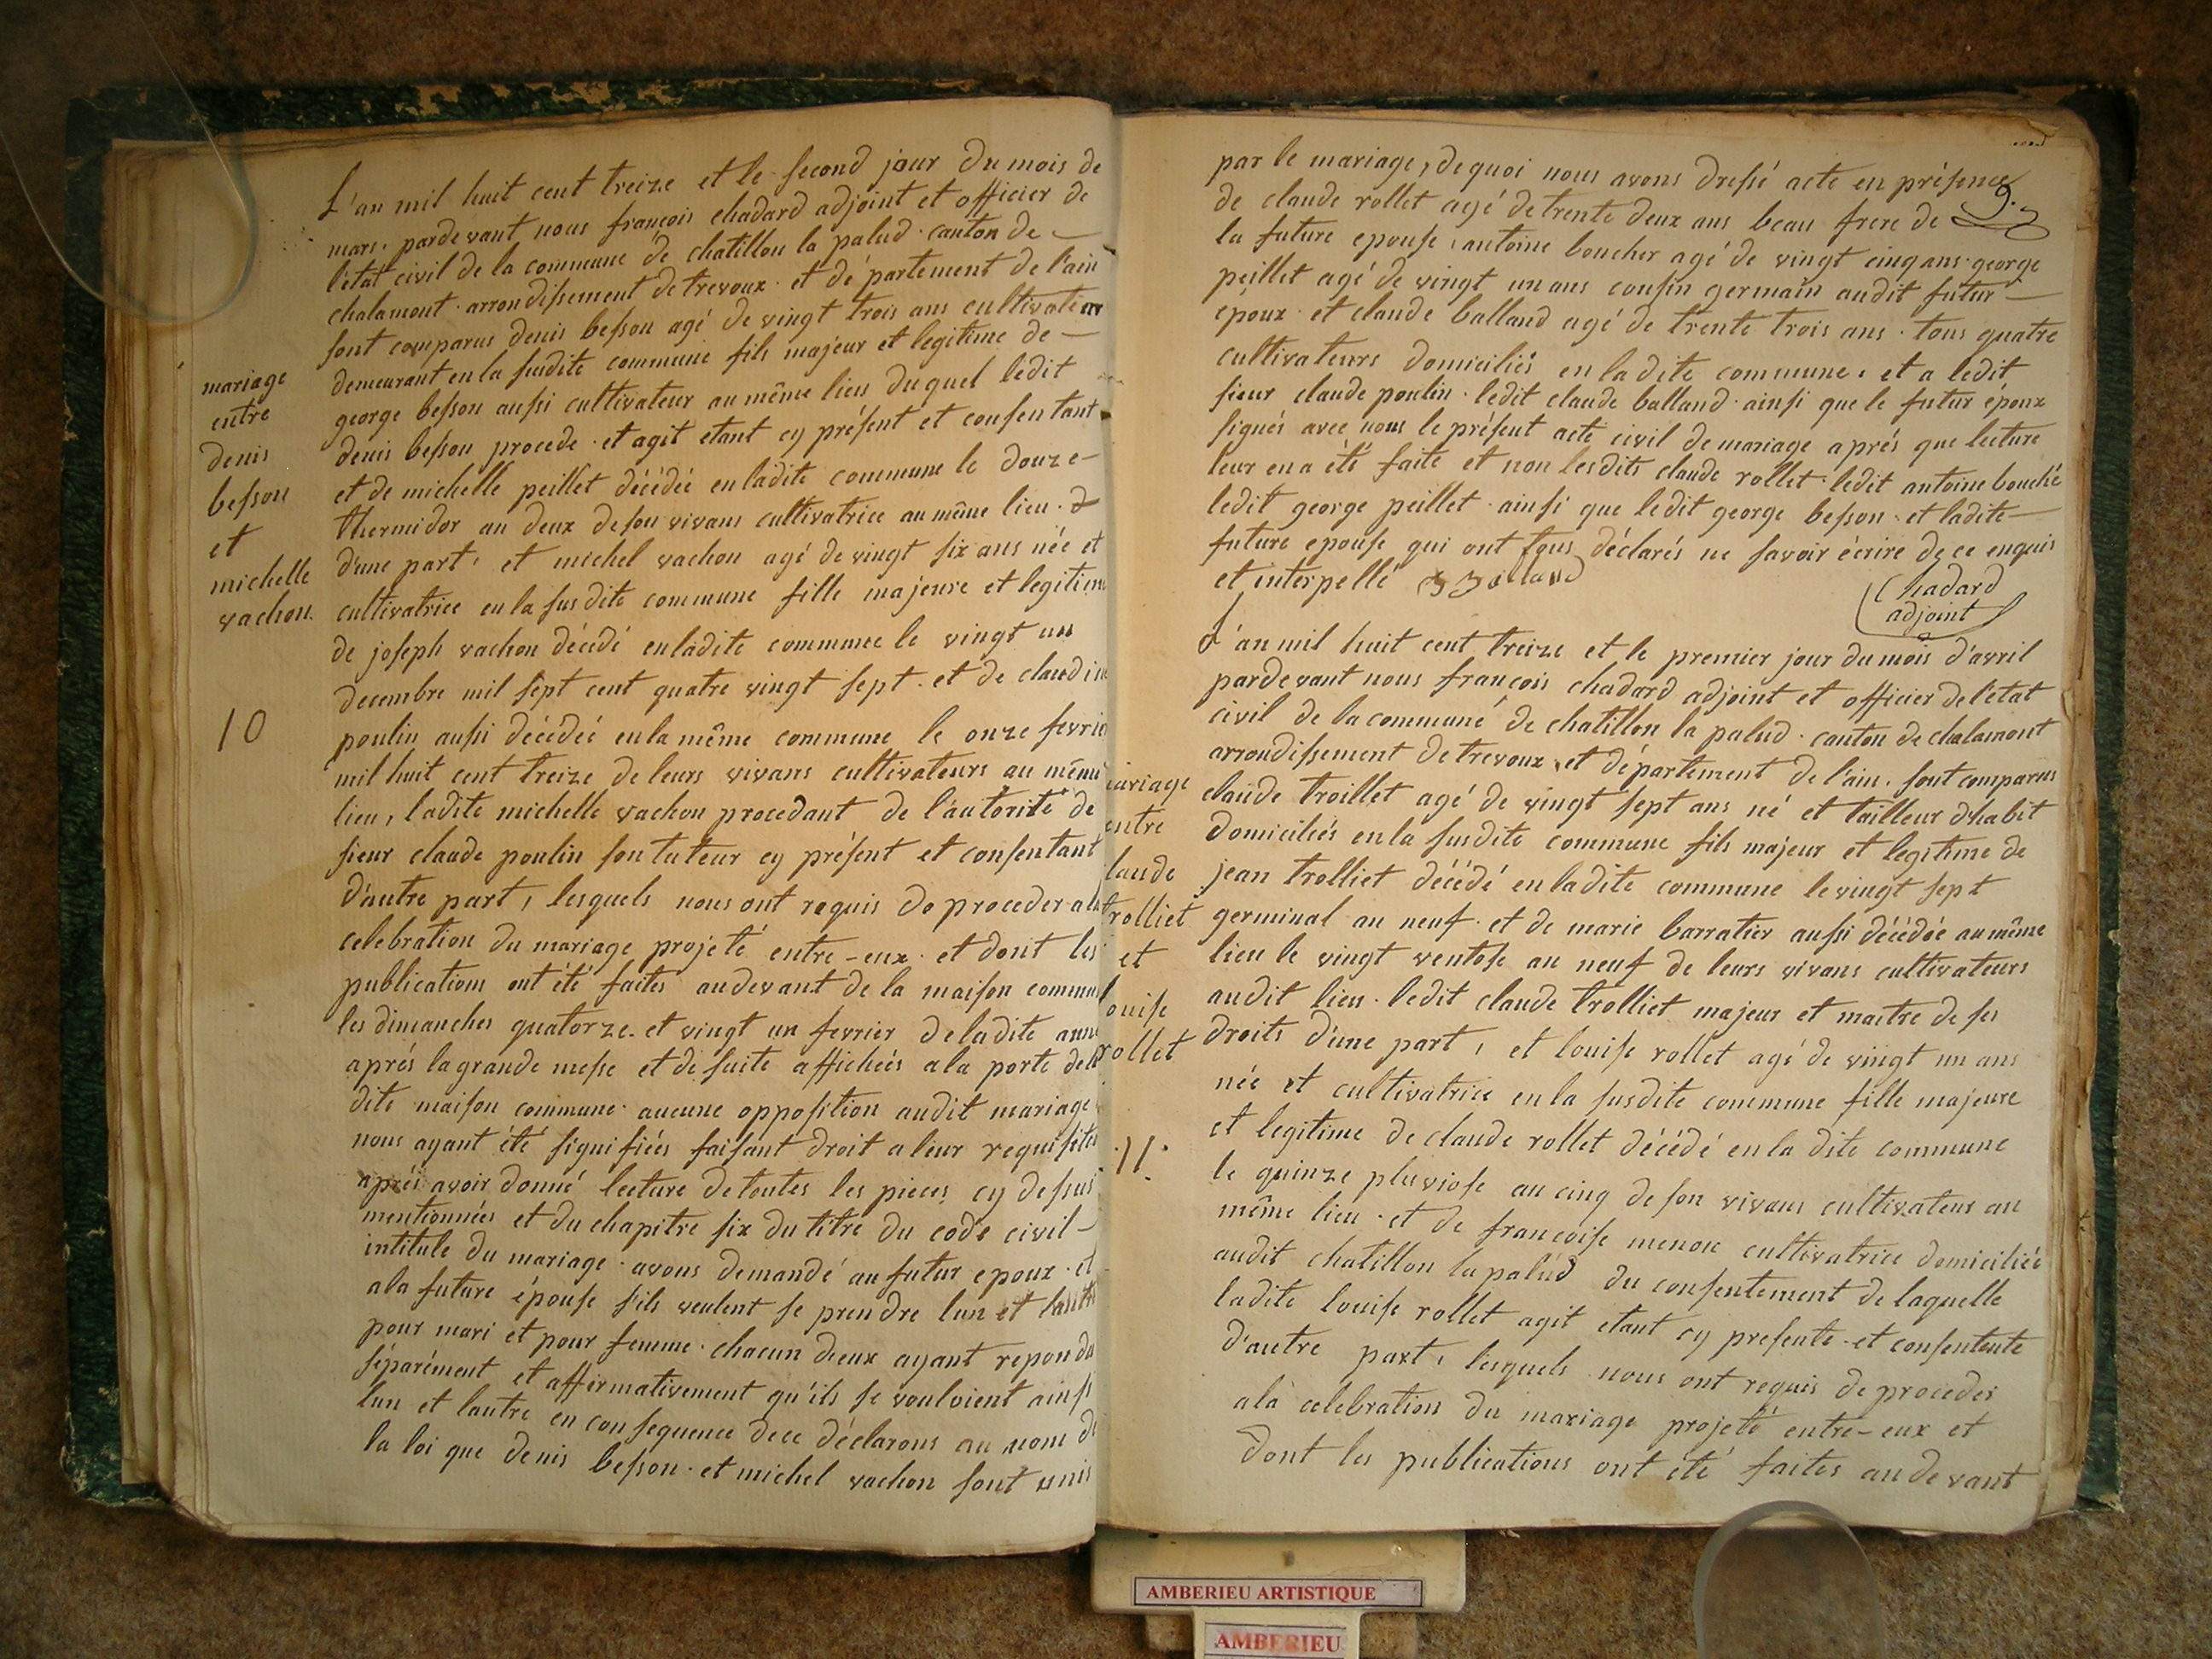 L'an mil huit cent treize et le second jour du mois de
mars. pardevant nous françois chadard adjoint et officier de
l'état civil de la commune de chatillon la palud. canton de —
chalamont. arrondissement de trevoux. et département de l'ain
sont comparus denis besson agé de vingt trois ans cultivateur
demeurant en la susdite commune fils majeur et legitime de —
george besson aussi cultivateur au même lieu duquel ledit
denis besson procede. et agit etant cy présent et consentant
et de michelle peillet décédée en ladite commune le douze —
thermidor an deux de son vivans cultivatrice au même lieu.
d'une part, et michel vachon agé de vingt six ans née et
cultivatrice en la susdite commune fille majeure et legitime
de joseph vachon décédé en ladite commune le vingt un
decembre mil sept cent quatre vingt sept. et de claudine
poulin aussi décédée en la même commune le onze fevrier
mil huit cent treize de leurs vivans cultivateurs au même
lieu, ladite michelle vachon procedant de l'autorité de
sieur claude poulin son tuteur cy présent et consentant
d'autre part, lesquels nous ont requis de proceder a la
celebration du mariage projeté entre-eux. et dont les
publications ont été faites au devant de la maison commune
les dimanches quatorze. et vingt un fevrier de ladite anné
aprés la grande messe et de suite affichéés a la porte de la
dite maison commune. aucune opposition audit mariage
nous ayant été signifiéés faisant droit a leur requisition
aprés avoir donné lecture de toutes les pieces cy dessus
mentionnées et du chapitre six du titre du code civil —
intitule du mariage. avons demandé au futur epoux. et
a la future épouse s'ils veulent se prendre lun et lautre
pour mari et pour femme. chacun deux ayant repondu
séparément et affirmativement qu'ils se vouloient ainsi
lun et lautre en consequence de ce déclarons au nom de
la loi que denis besson. et michel vachon sont unis
mariage
entre
denis
besson
et
michelle
vachon.
10
9.
par le mariage, de quoi nous avons dressé acte en présence
de claude rollet agé de trente deux ans beau frere de
la future epouse, antoine boucher agé de vingt cinq ans. george
peillet agé de vingt un ans cousin germain audit futur —
époux. et claude balland agé de trente trois ans. tous quatre
cultivateurs domiciliés en ladite commune. et a ledit
sieur claude poulin. ledit claude balland. ainsi que le futur époux
signés avec nous le présent acte civil de mariage aprés que lecture
leur en a été faite et non lesdits claude rollet. ledit antoine bouché
ledit george peillet. ainsi que ledit george besson. et ladite —
future epouse qui ont tous déclarés ne savoir écrire de ce enquis
et interpellé
Chadard
adjoint
L'an mil huit cent treize et le premier jour du mois d'avril
pardevant nous françois chadard adjoint et officier de l'etat
civil de la commune de chatillon la palud. canton de chalamont
arrondissement de trevoux, et département de l'ain. sont comparus
claude troillet agé de vingt sept ans né et tailleur d'habit
domiciliés en la susdite commune fils majeur et legitime de
jean trolliet décédé en ladite commune le vingt sept
germinal an neuf. et de marie barratier aussi décédée au même
lieu le vingt ventose an neuf de leurs vivans cultivateurs
audit lieu. ledit claude trolliet majeur et maitre de ses
droits d'une part, et louise rollet agé de vingt un ans
née et cultivatrice en la susdite commune fille majeure
et legitime de claude rollet décédé en la dite commune
le quinze pluviose an cinq de son vivans cultivateur au
même lieu. et de françoise menou cultivatrice domiciliée
audit chatillon la palud du consentement de laquelle
ladite louise rollet agit etant cy presente. et consentente
d'autre part, lesquels nous ont requis de proceder
a la celebration du mariage projeté entre-eux et
dont les publications ont été faites au devant
mariage
entre
laude
trolliet
et
louise
rollet
11.
AMBERIEU ARTISTIQUE
AMBERIEU